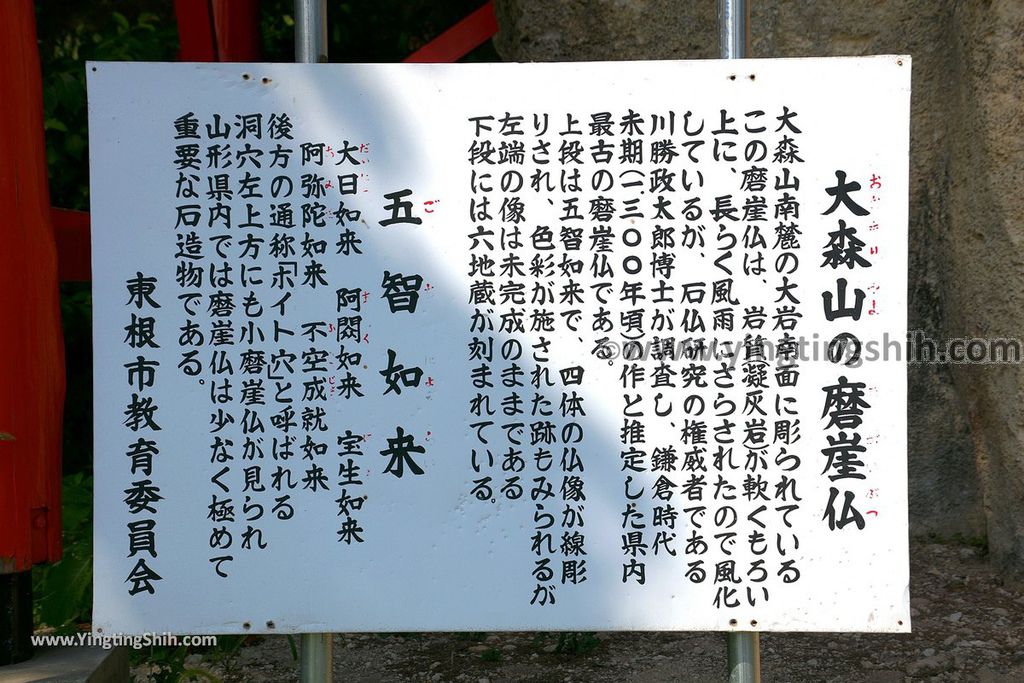 大森山の磨崖仏
大森山南麓の大岩南面に彫られている
この磨崖仏は、岩質凝灰岩が軟くもろい
上に、長らく風雨にさらされたので風化
しているが、石仏研究の権威者である
川勝政太郎博士が調査し、鎌倉時代
末期(一三〇〇年頃)の作と推定した県内
最古の磨崖仏である。
上段は五智如来で、四体の仏像が線彫
りされ、色彩が施された跡もみられるが
左端の像は未完成のままである
下段には六地蔵が刻まれている。
五智如来
大日如来 阿閦如来 宝生如来
阿弥陀如来 不空成就如来
後方の通称「ホイト穴」と呼ばれる
洞穴左上方にも小磨崖仏が見られ
山形県内では磨崖仏は少なく極めて
重要な石造物である。
東根市教育委員会
©www.yingtingshih.com
www.YingtingShih.com